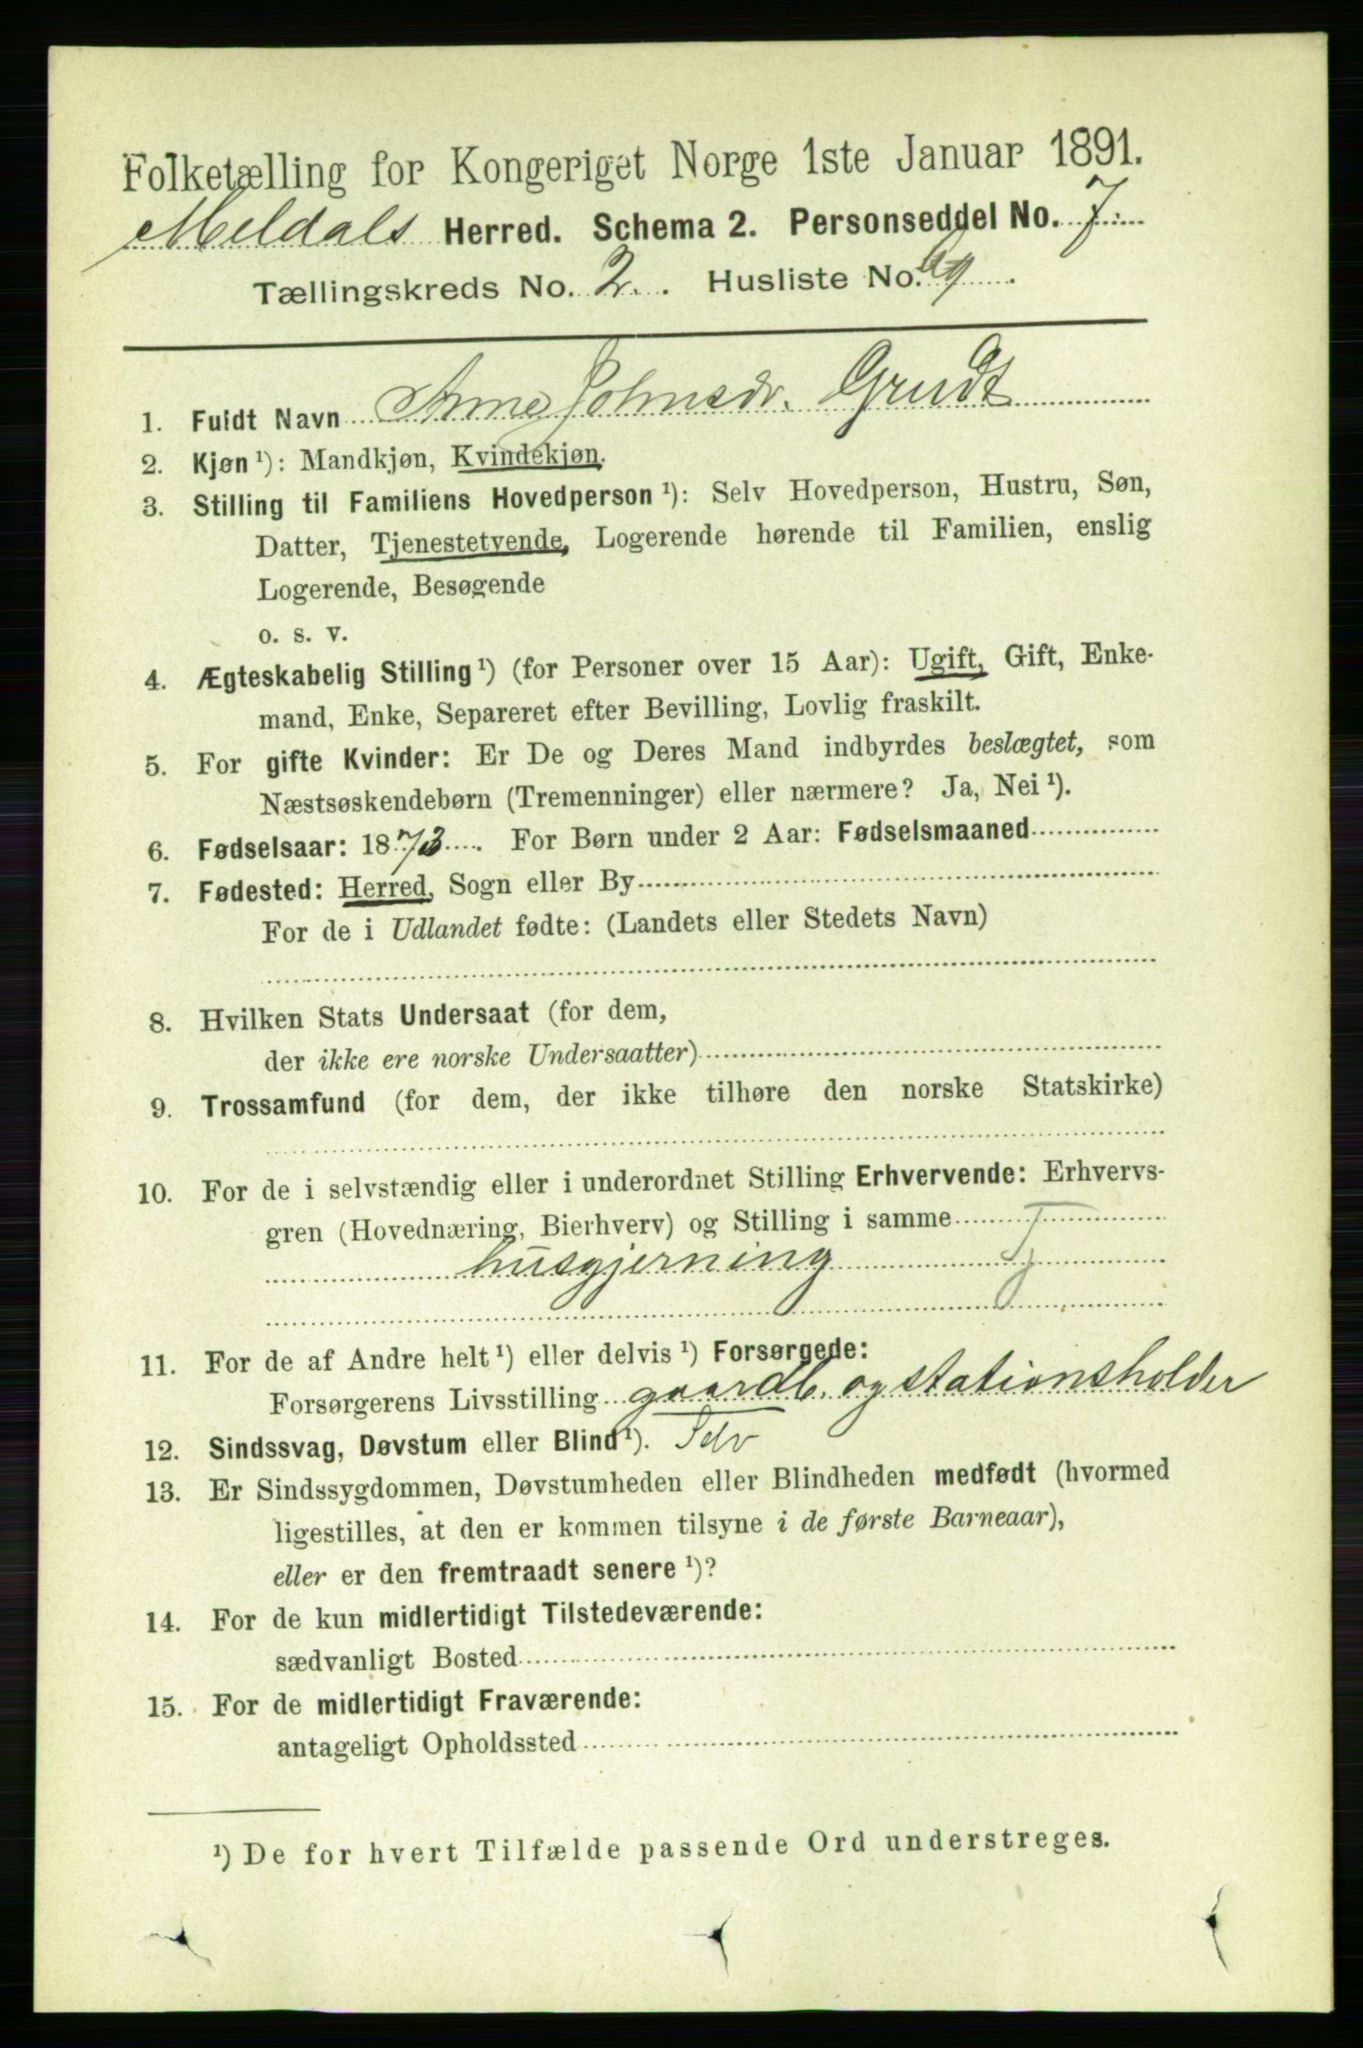 Folketælling for Kongeriget Norge 1ste Januar 1891.
Meldals Herred. Schema 2. Personseddel No. 7.
Tællingskreds No. 2. Husliste No. 69.
1. Fuldt Navn Anne Johnsdr. Grudt
2. Kjøn ¹): Mandkjøn, Kvindekjøn.
3. Stilling til Familiens Hovedperson ¹): Selv Hovedperson, Hustru, Søn,
Datter, Tjenestetyende, Logerende hørende til Familien, enslig
Logerende, Besøgende
o. s. v.
4. Ægteskabelig Stilling ¹) (for Personer over 15 Aar): Ugift, Gift, Enke-
mand, Enke, Separeret efter Bevilling, Lovlig fraskilt.
5. For gifte Kvinder: Er De og Deres Mand indbyrdes beslægtet, som
Næstsøskendebørn (Tremenninger) eller nærmere? Ja, Nei ¹).
6. Fødselsaar: 1873. For Børn under 2 Aar: Fødselsmaaned
7. Fødested: Herred, Sogn eller By
For de i Udlandet fødte: (Landets eller Stedets Navn)
8. Hvilken Stats Undersaat (for dem,
der ikke ere norske Undersaatter)
9. Trossamfund (for dem, der ikke tilhøre den norske Statskirke)
10. For de i selvstændig eller i underordnet Stilling Erhvervende: Erhvervs-
gren (Hovednæring, Bierhverv) og Stilling i samme
husgjerning Tj
11. For de af Andre helt ¹) eller delvis ¹) Forsørgede:
Forsørgerens Livsstilling gaardb. og stationsholder
12. Sindssvag, Døvstum eller Blind ¹). Selv
13. Er Sindssygdommen, Døvstumheden eller Blindheden medfødt (hvormed
ligestilles, at den er kommen tilsyne i de første Barneaar),
eller er den fremtraadt senere ¹)?
14. For de kun midlertidigt Tilstedeværende:
sædvanligt Bosted
15. For de midlertidigt Fraværende:
antageligt Opholdssted
¹) De for hvert Tilfælde passende Ord understreges.